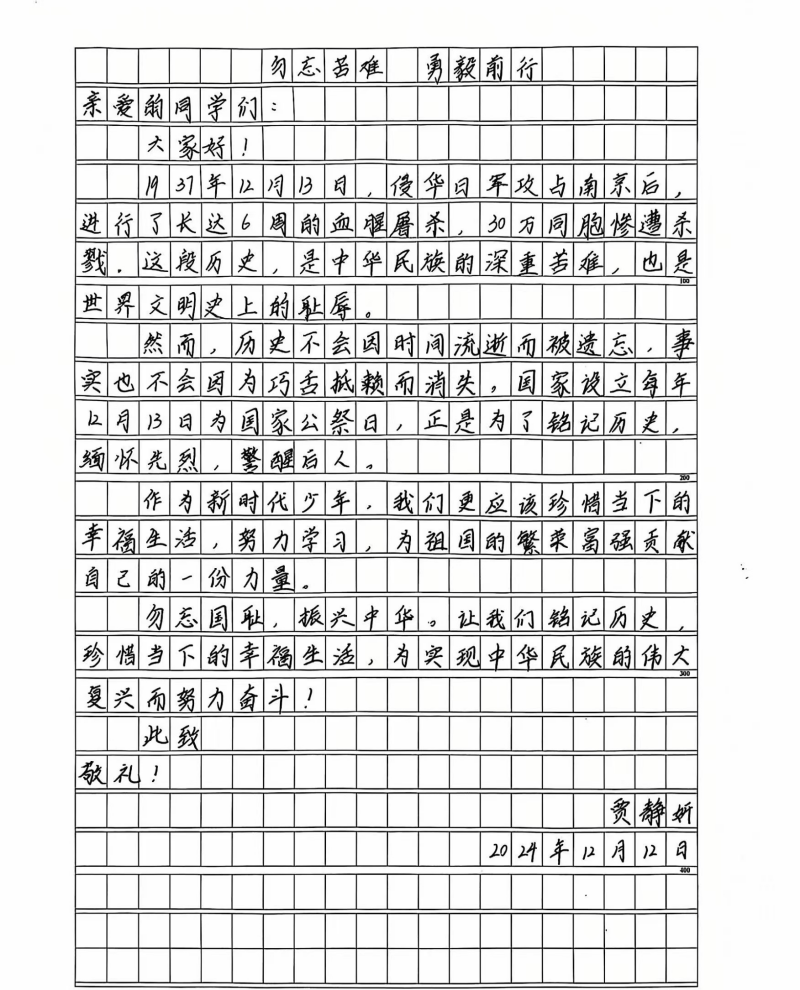 勿忘苦难 勇毅前行
亲爱的同学们：
大家好！
1937年12月13日，侵华日军攻占南京后，
进行了长达6周的血腥屠杀，30万同胞惨遭杀
戮．这段历史，是中华民族的深重苦难，也是
100
世界文明史上的耻辱。
然而，历史不会因时间流逝而被遗忘．事
实也不会因为巧舌抵赖而消失。国家设立每年
12月13日为国家公祭日，正是为了铭记历史，
缅怀先烈，警醒后人。
200
作为新时代少年，我们更应该珍惜当下的
幸福生活，努力学习，为祖国的繁荣富强贡献
自己的一份力量。
勿忘国耻，振兴中华。让我们铭记历史，
珍惜当下的幸福生活，为实现中华民族的伟大
300
复兴而努力奋斗！
此致
敬礼！
贾静妍
2024年12月12日
400